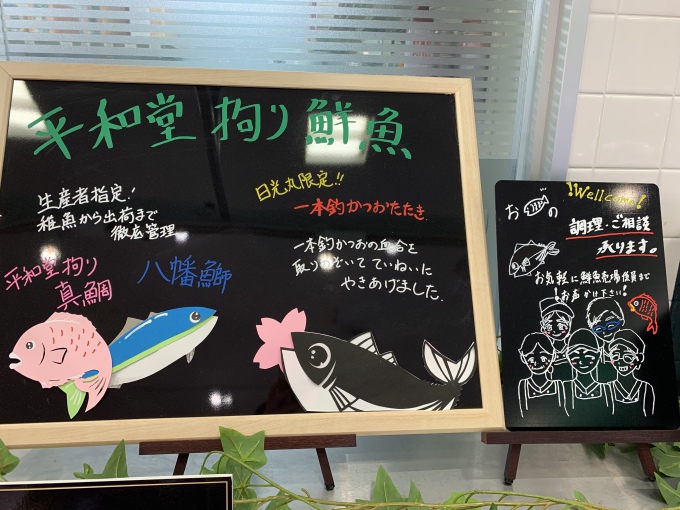 平和堂 拘り 鮮魚
生産者指定!
稚魚から出荷まで
徹底管理
平和堂 拘り
真鯛
八幡鰤
日光丸限定!!
一本釣かつおたたき
一本釣かつおの血合を
取りのぞいて ていねいに
やきあげました.
!Wellcome!
お の
調理・ご相談
承ります。
お気軽に鮮魚売場係員まで
!お声かけ下さい!